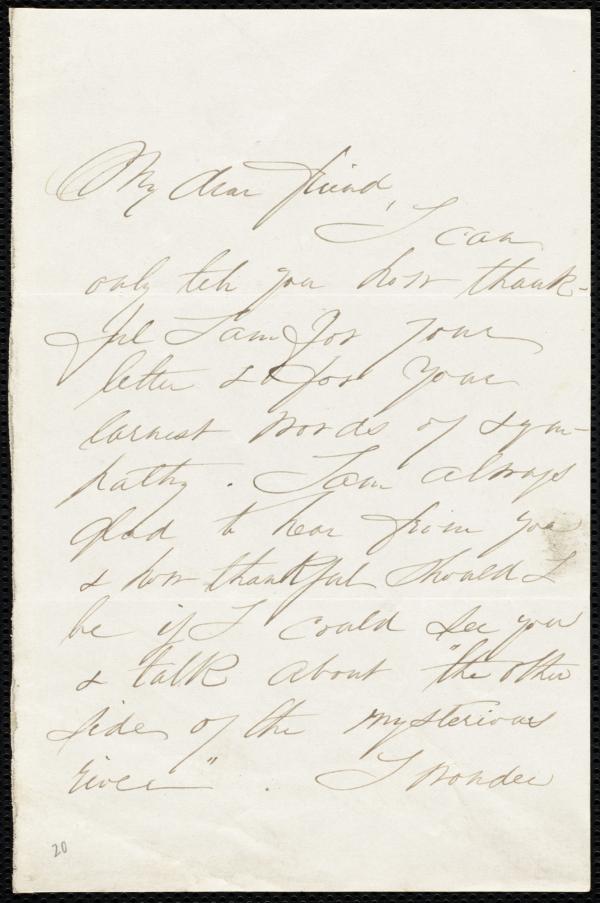 My dear friend,
I can
only tell you how thank-
ful I am for your
letter & for your
earnest words of sym-
pathy. I am always
glad to hear from you
& how thankful should I
be if I could see you
& talk about "the other
side of the mysterious
river". I wonder
20